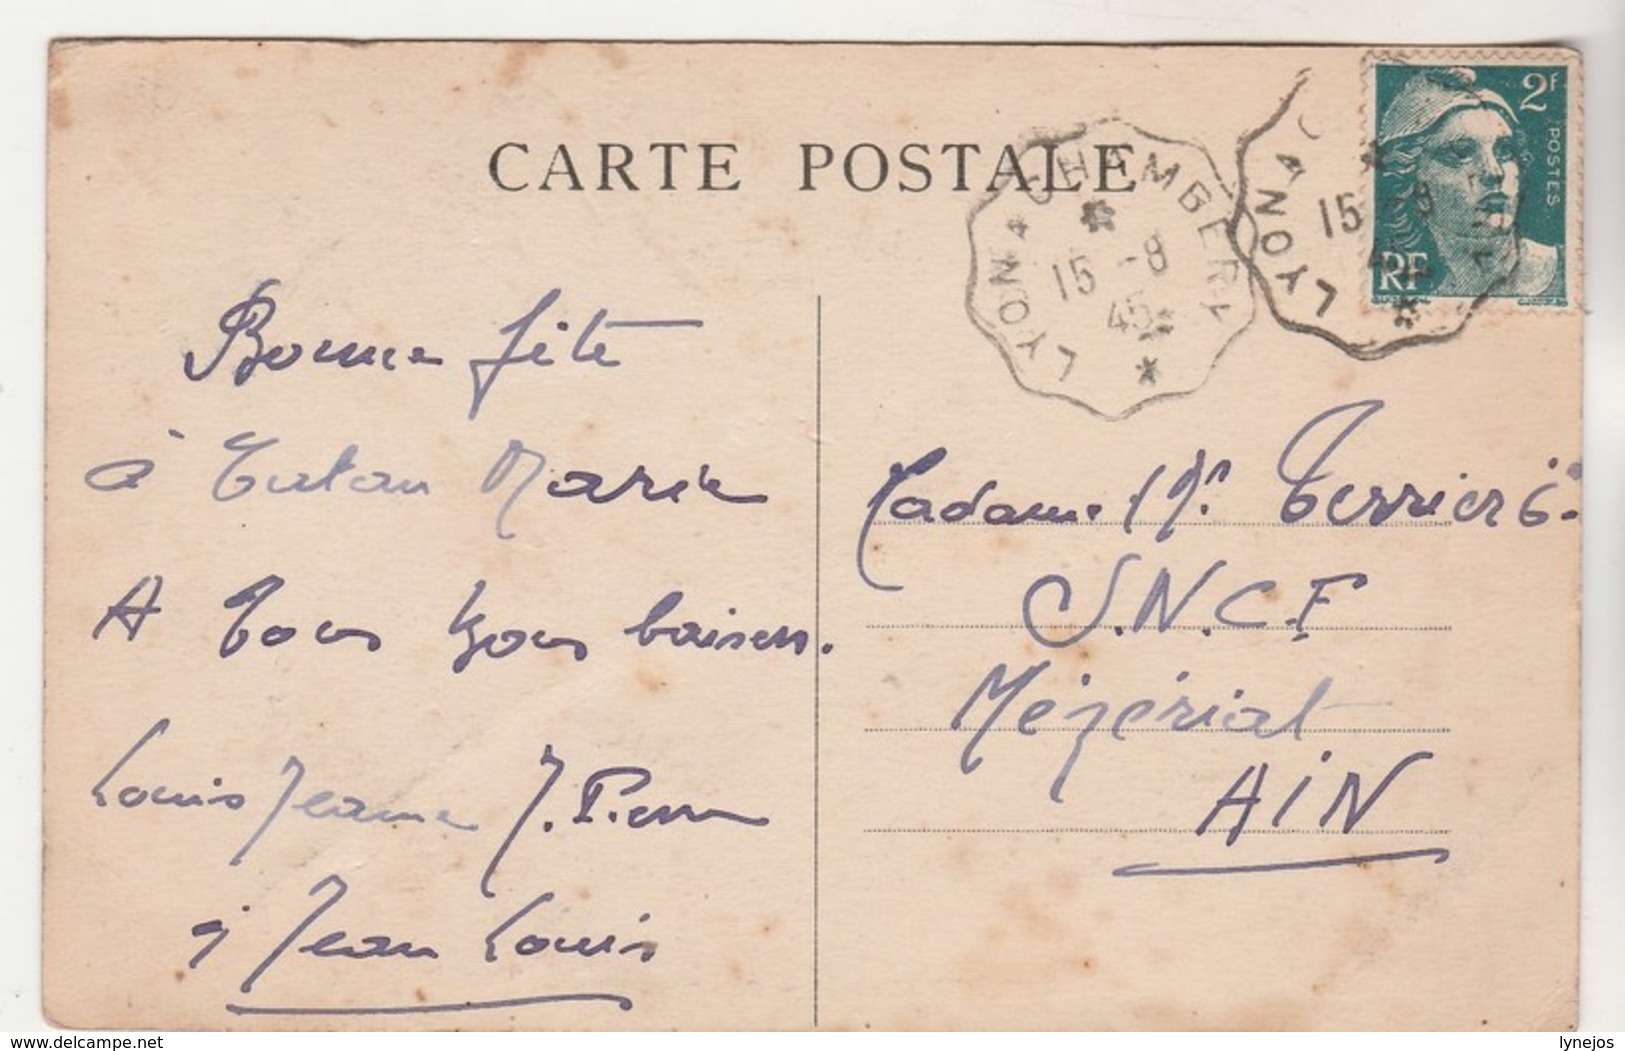 CARTE POSTALE
LYON A CHAMBERY
15 -8
45
LYON A
15 -8
2F
POSTES
RF
Bonne fête
à Tatan Marie
A Tous bons baisers.
Louis Jeanne J. Pierre
Jean Louis
Madame Terrier
S.N.C.F
Mézériat
AIN
www.delcampe.net
lynejos